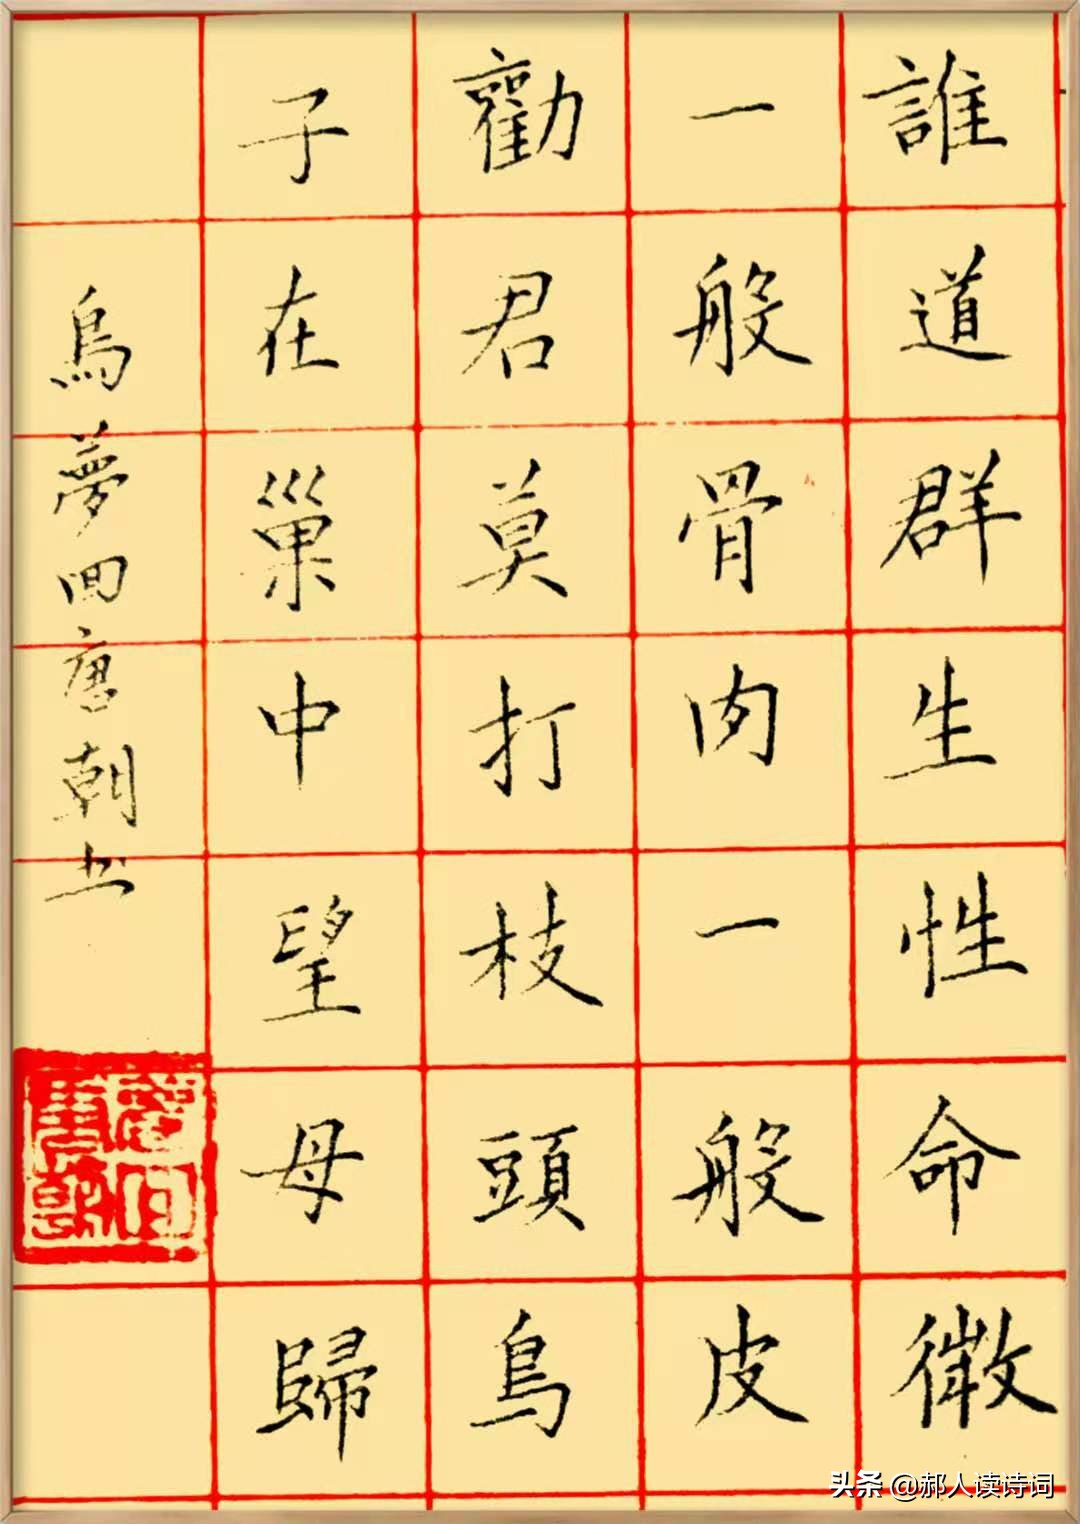 誰道群生性命微
一般骨肉一般皮
勸君莫打枝頭鳥
子在巢中望母歸
鳥夢回唐朝书
夢回唐朝
头条 @郝人读诗词